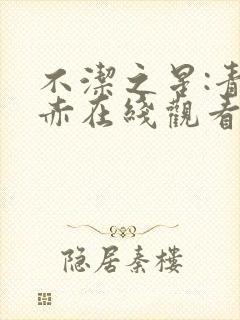 不潔之星:青
赤在綫觀看
隐居秦樓